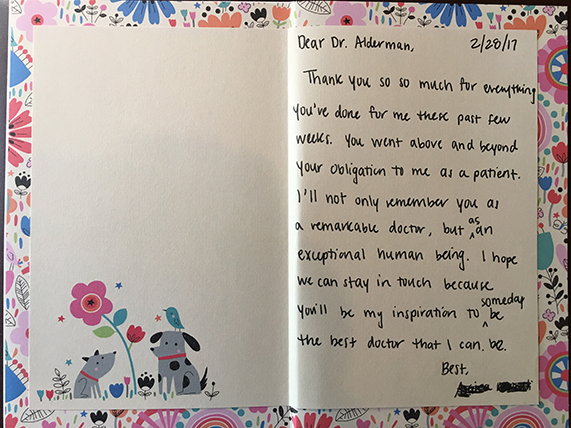 Dear Dr. Alderman, 2/28/17
Thank you so so much for everything
you've done for me these past few
weeks. You went above and beyond
your obligation to me as a patient.
I'll not only remember you as
a remarkable doctor, but as an
exceptional human being. I hope
we can stay in touch because
you'll be my inspiration to someday be
the best doctor that I can be.
Best,